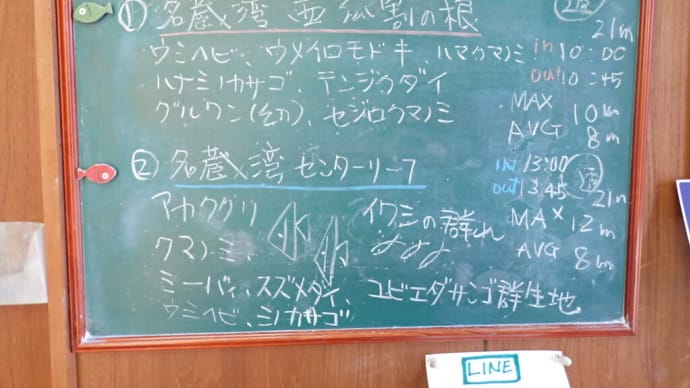 ① 名蔵湾
21m
ウミヘビ、ウメイロモドキ、ハマクマノミ in 10:00
ハナミノカサゴ、テンジクダイ out 10:45
グルクン(その)、セジロクマノミ MAX 10m
AVG 8m
② 名蔵湾 センターリーフ IN 13:00
out 13:45
21m
アカククリ イワシの群れ MAX 12m
クマノミ、 AVG 8m
ミーバイ、スズメダイ、 ユビエダサンゴ群生地
ウミヘビ、ミノカサゴ
LINE